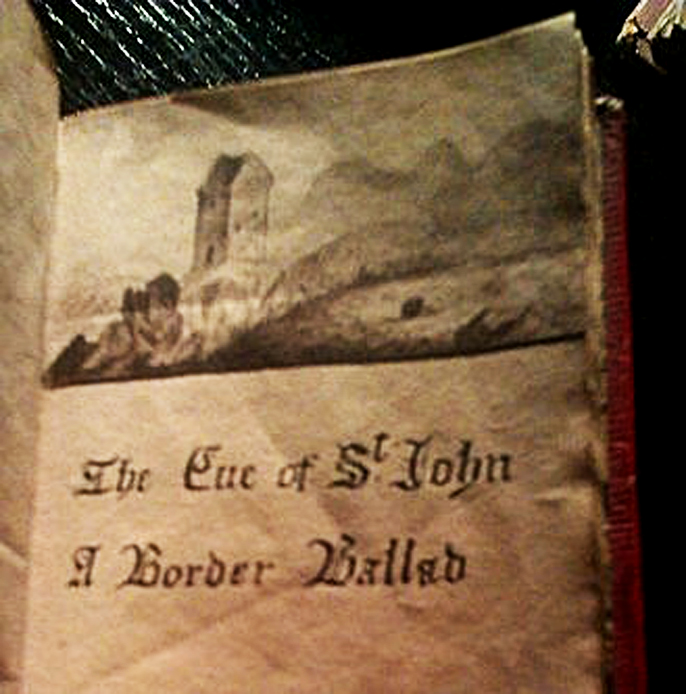 The Eve of St. John
A Border Ballad